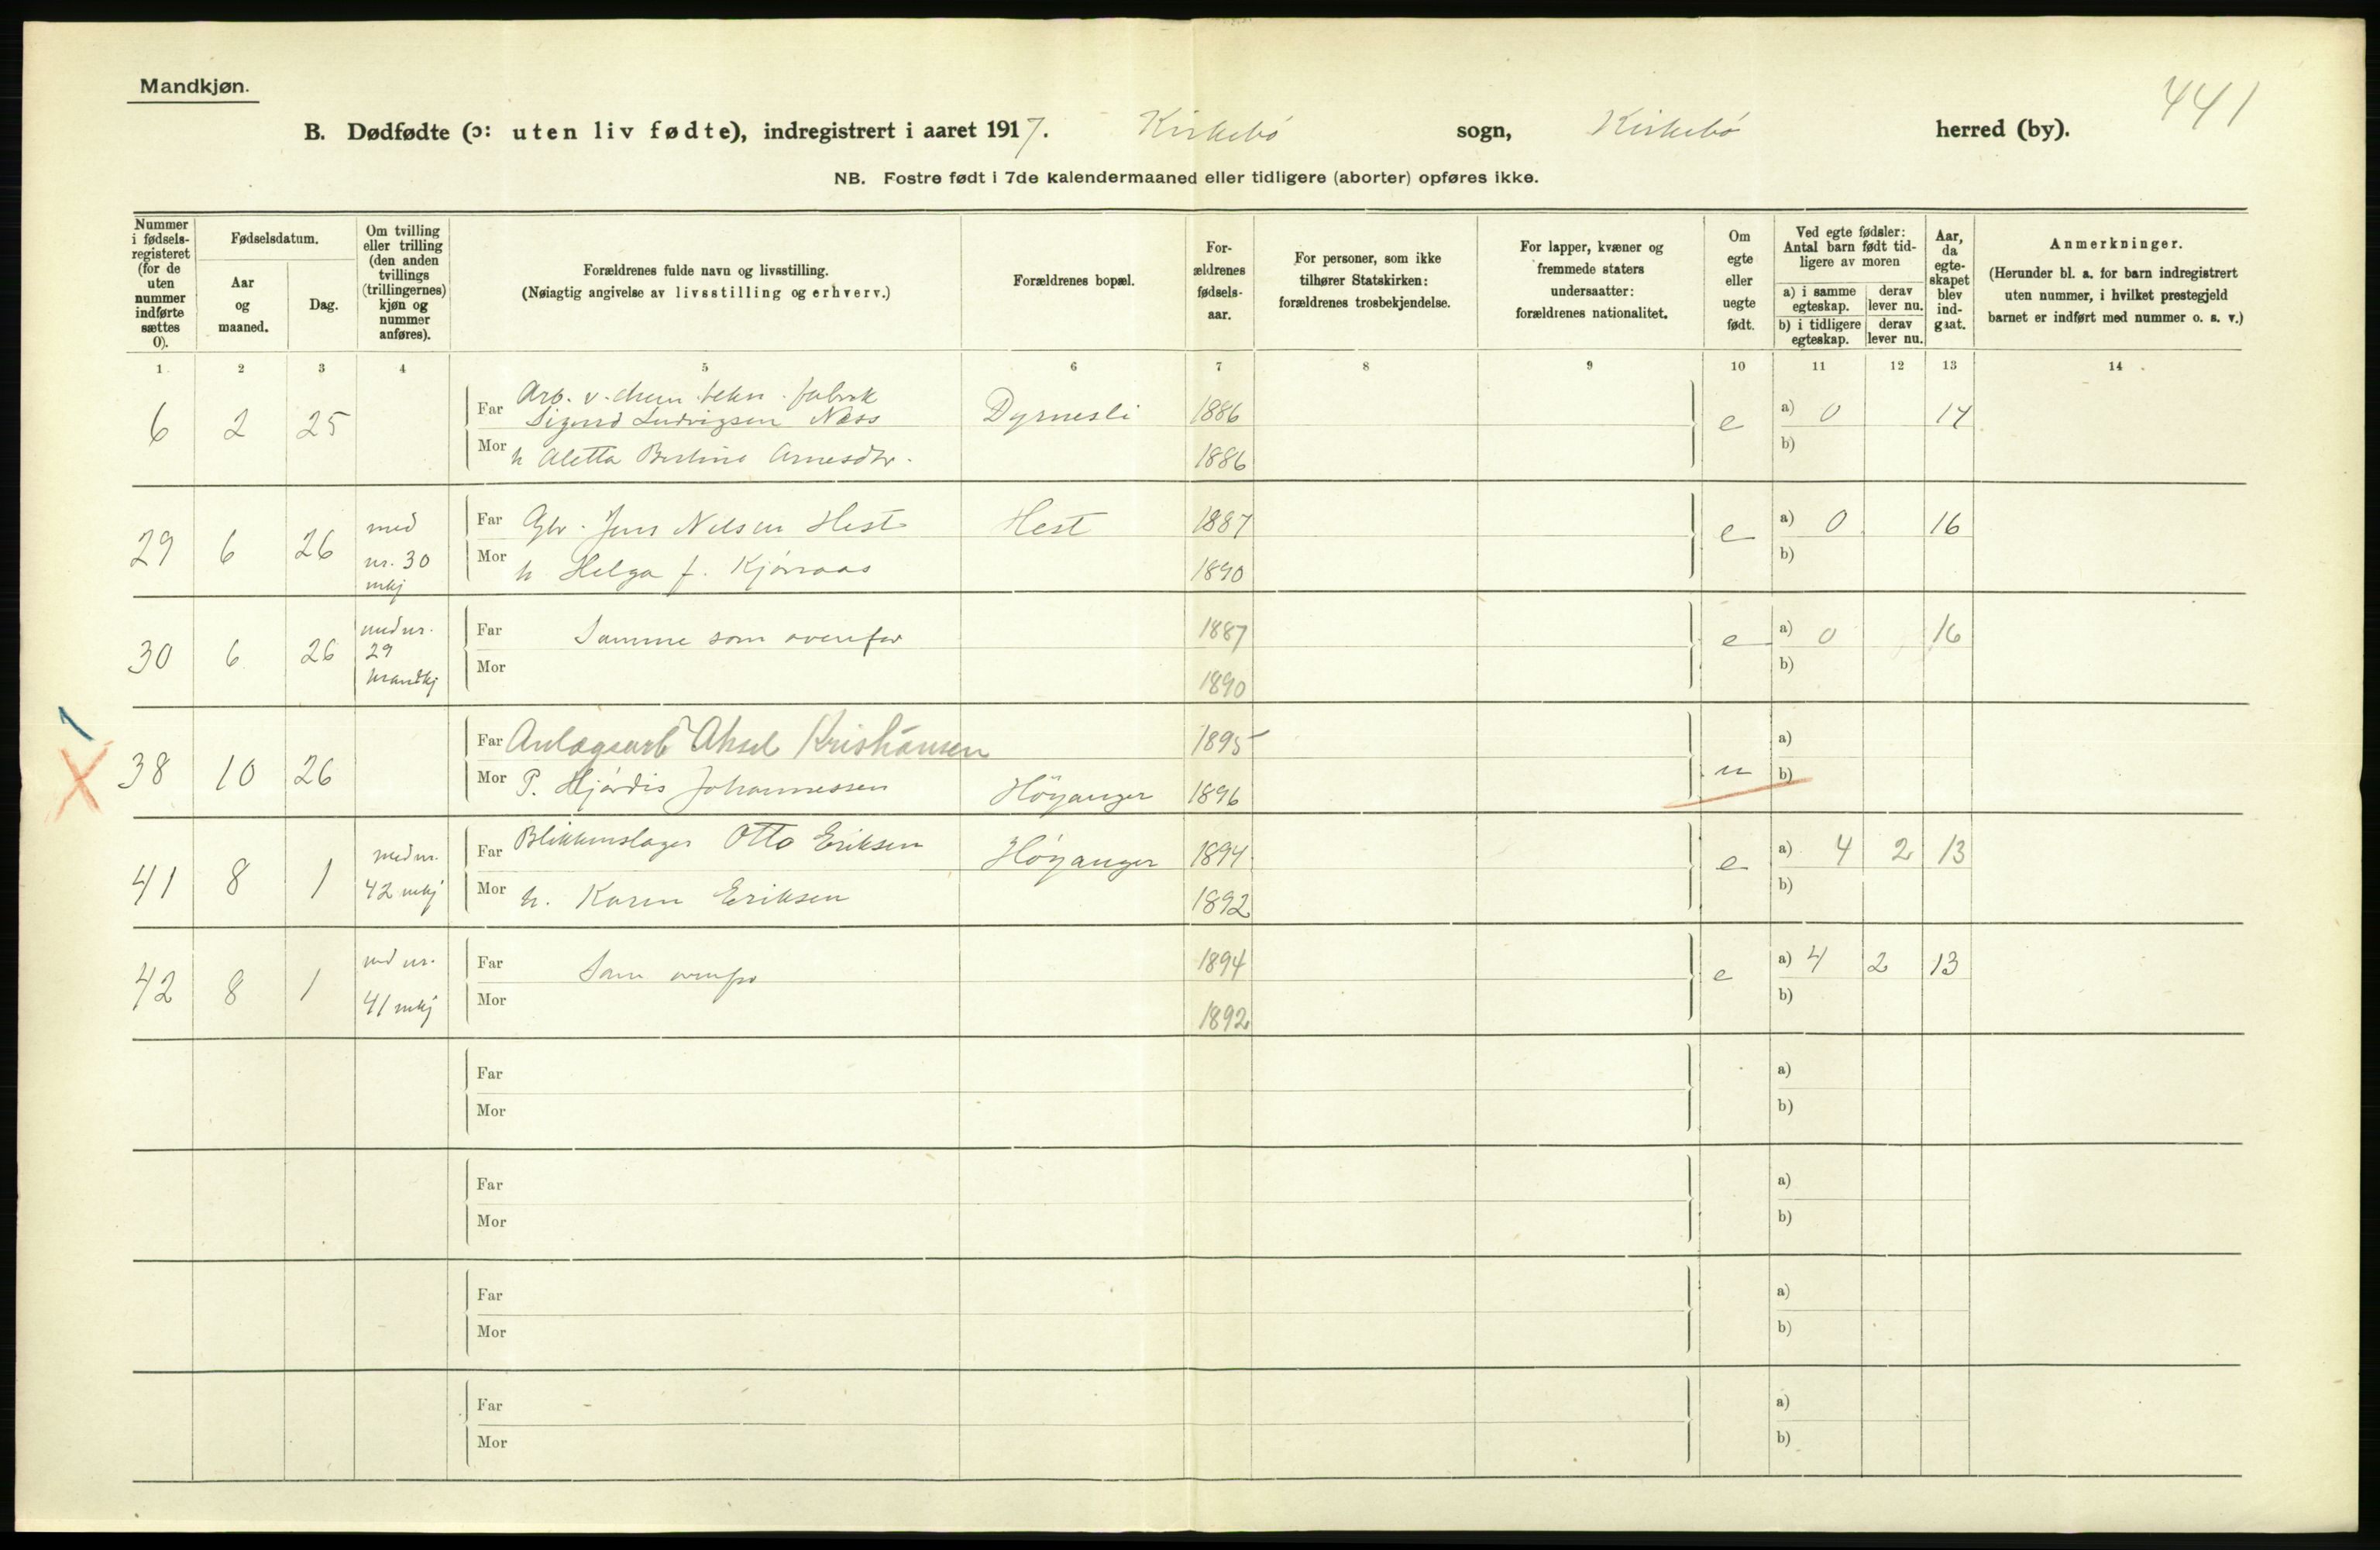 Mandkjøn.
441
B. Dødfødte (ɔ: uten liv fødte), indregistrert i aaret 1917. Kirkebö sogn, Kirkebö herred (by).
NB. Fostre født i 7de kalendermaaned eller tidligere (aborter) opføres ikke.
Nummer i fødsels-registeret (for de uten nummer indførte sættes 0).
Fødselsdatum.
Aar og maaned.
Dag.
Om tvilling eller trilling (den anden tvillings (trillingernes) kjøn og nummer anføres).
Forældrenes fulde navn og livsstilling.
(Nøiagtig angivelse av livsstilling og erhverv.)
Forældrenes bopæl.
For-ældrenes fødsels-aar.
For personer, som ikke tilhører Statskirken: forældrenes trosbekjendelse.
For lapper, kvæner og fremmede staters undersaatter: forældrenes nationalitet.
Om egte eller uegte født.
Ved egte fødsler: Antal barn født tid-ligere av moren
a) i samme egteskap.
derav lever nu.
b) i tidligere egteskap.
derav lever nu.
Aar, da egte-skapet blev ind-gaat.
Anmerkninger.
(Herunder bl. a. for barn indregistrert uten nummer, i hvilket prestegjeld barnet er indført med nummer o. s. v.)
1 2 3 4 5 6 7 8 9 10 11 12 13 14
Arb. v. chem. tekn. fabrik
6 2 25 Far Sigurd Ludvigsen Næss Dyrnesli 1886 e a) 0 14
Mor h Aletta Bertine Arnesdtr. 1886 b)
29 6 26 med nr. 30 mkj Far Gbr. Jens Nilsen Hest Hest 1887 e a) 0 16
Mor h. Helga f. Kjörraas 1890 b)
30 6 26 med nr. 29 mandkj Far Samme som ovenfor 1887 e a) 0 16
Mor 1890 b)
1
X
38 10 26 Far Anlægsarb Aksel Kristiansen 1895 a)
Mor P. Hjördis Johannessen Höyanger 1896 u b)
41 8 1 med nr. 42 mkj Far Blikkenslager Otto Eriksen Höyanger 1894 e a) 4 2 13
Mor h. Karen Eriksen 1892 b)
42 8 1 med nr. 41 mkj Far Som ovenfor 1894 e a) 4 2 13
Mor 1892 b)
Far a)
Mor b)
Far a)
Mor b)
Far a)
Mor b)
Far a)
Mor b)